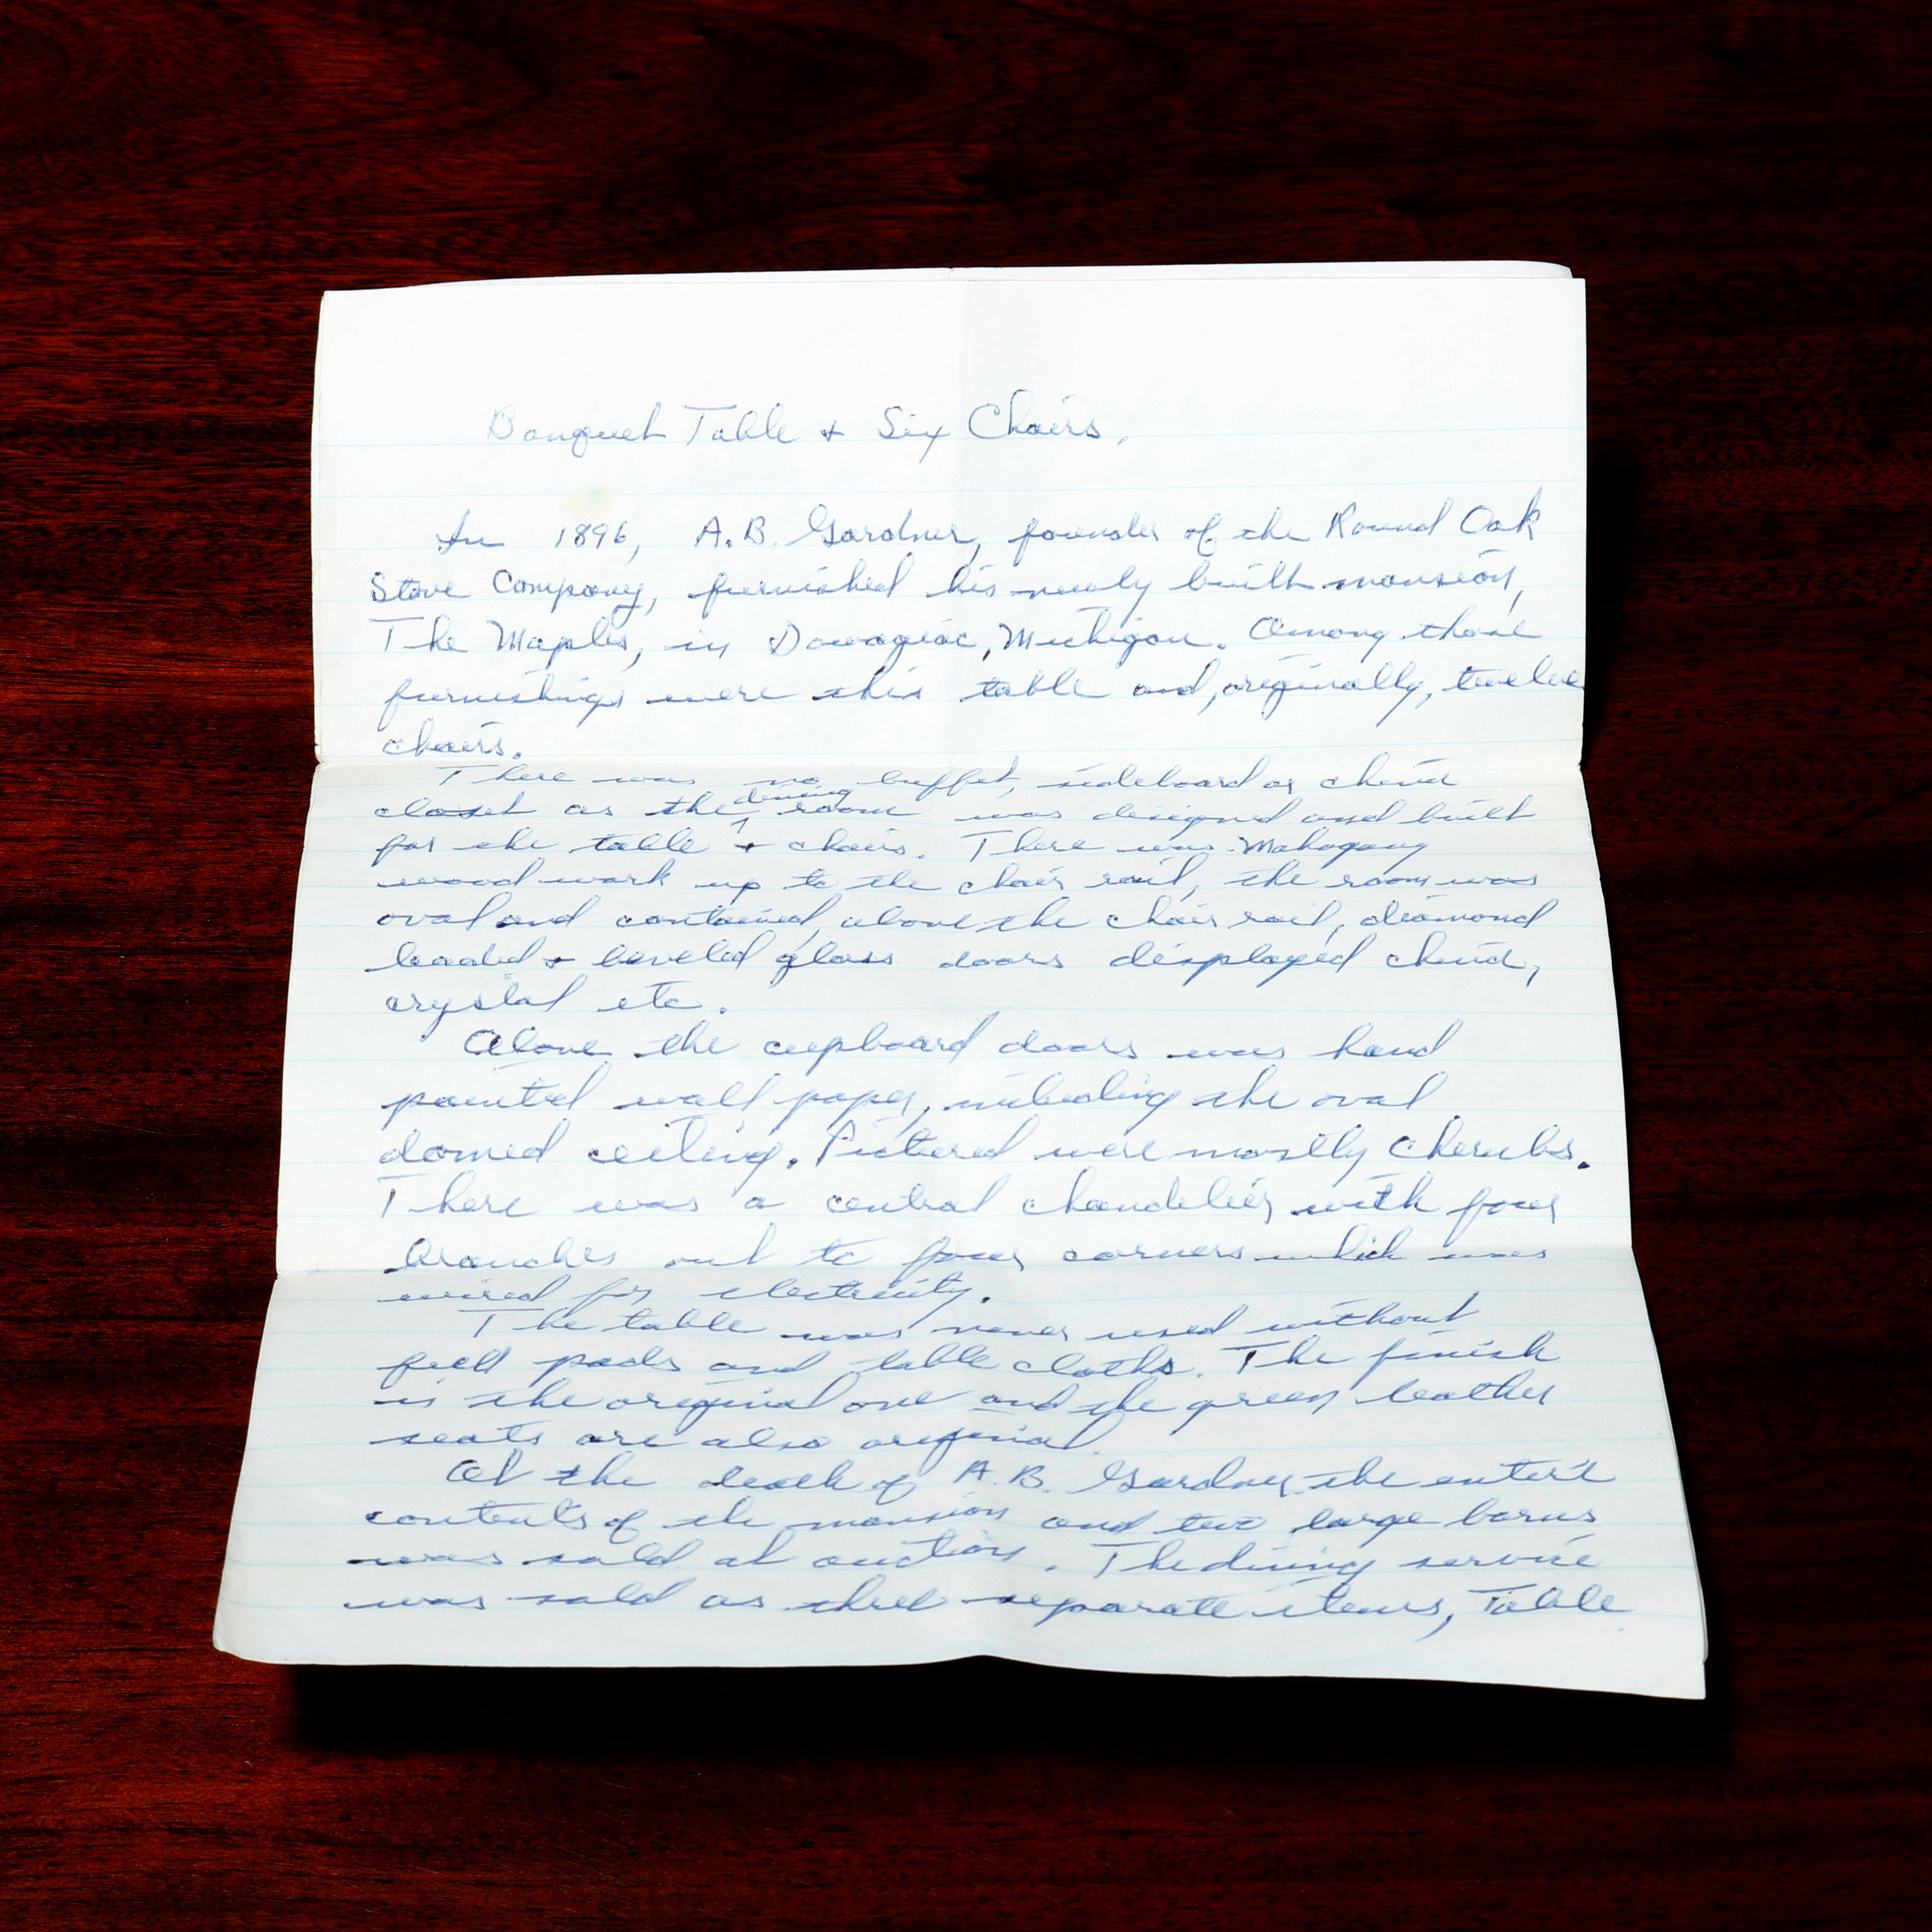 Banquet Table + Six Chairs.
In 1896, A.B. Gardner, founder of the Round Oak
Stove Company, furnished his newly built mansion,
The Maples, in Dowagiac, Michigan. Among those
furnishings were this table and, originally, twelve
chairs.
There was no buffet, sideboard or china
closet as the dining room was designed and built
for the table + chairs. There was Mahogany
wood work up to the chair rail, the room was
oval and contained, above the chair rail, diamond
leaded + beveled glass doors displayed china,
crystal etc.
Above the cupboard doors was hand
painted wall paper, including the oval
domed ceiling. Pictured were mostly Cherubs.
There was a central chandelier with four
branches out to four corners which was
wired for electricity.
The table was never used without
felt pads and table cloths. The finish
is the original one and the green leather
seats are also original.
At the death of A.B. Gardner the entire
contents of the mansion and two large barns
was sold at auction. The dining service
was sold as three separate items, Table